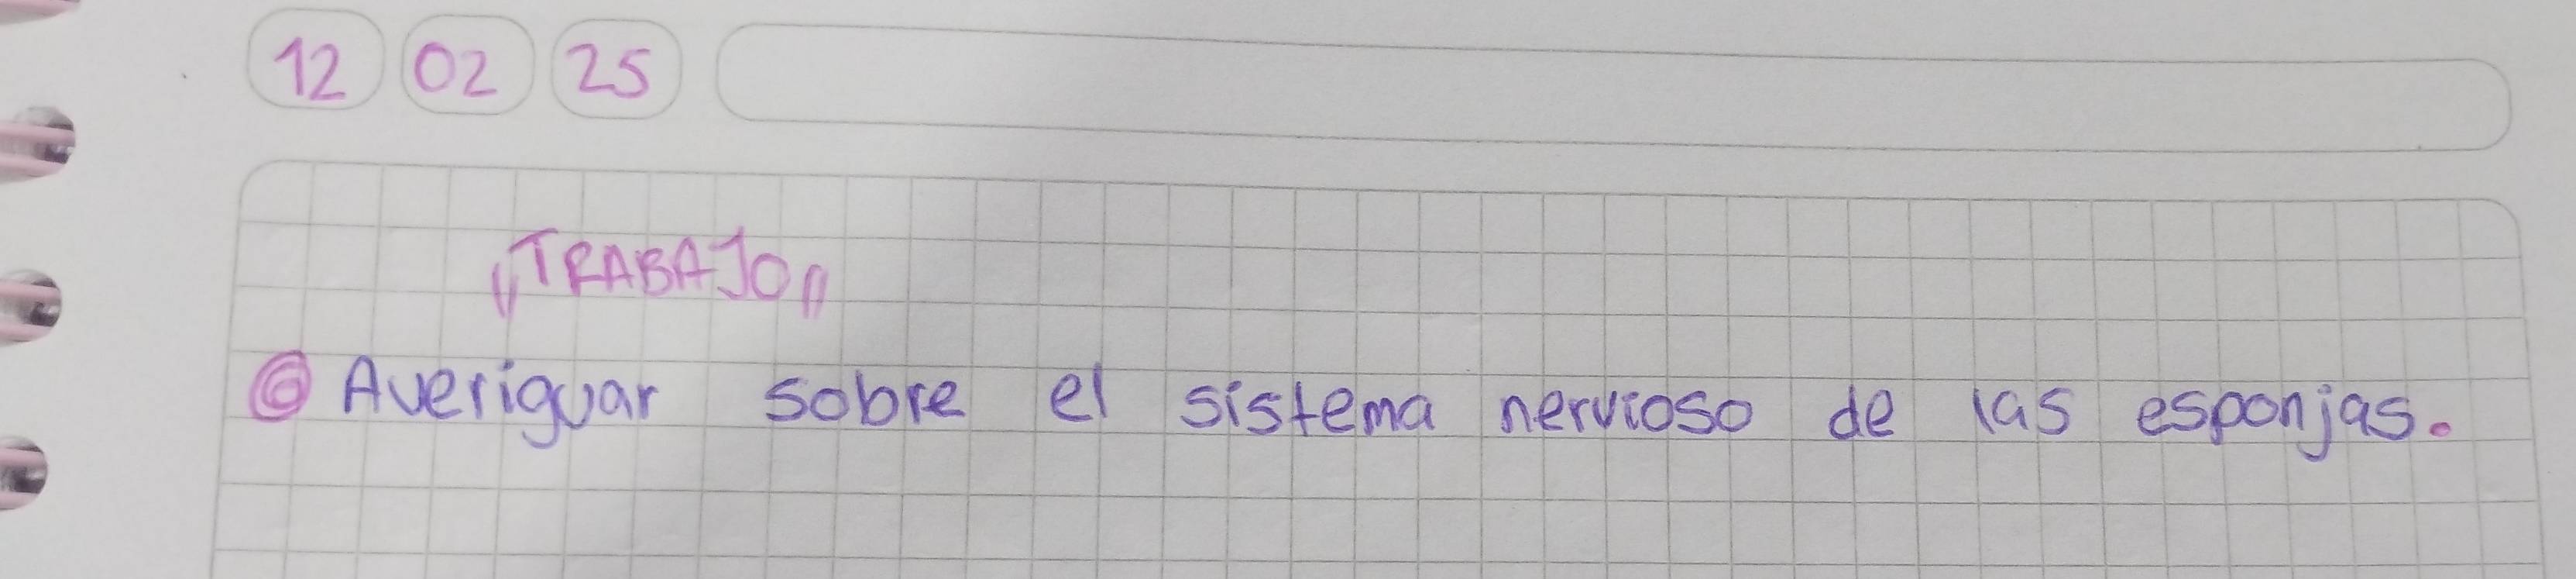 12 02 25
"TRABAJO"
Averiguar sobre el sistema nervioso de las esponjas.